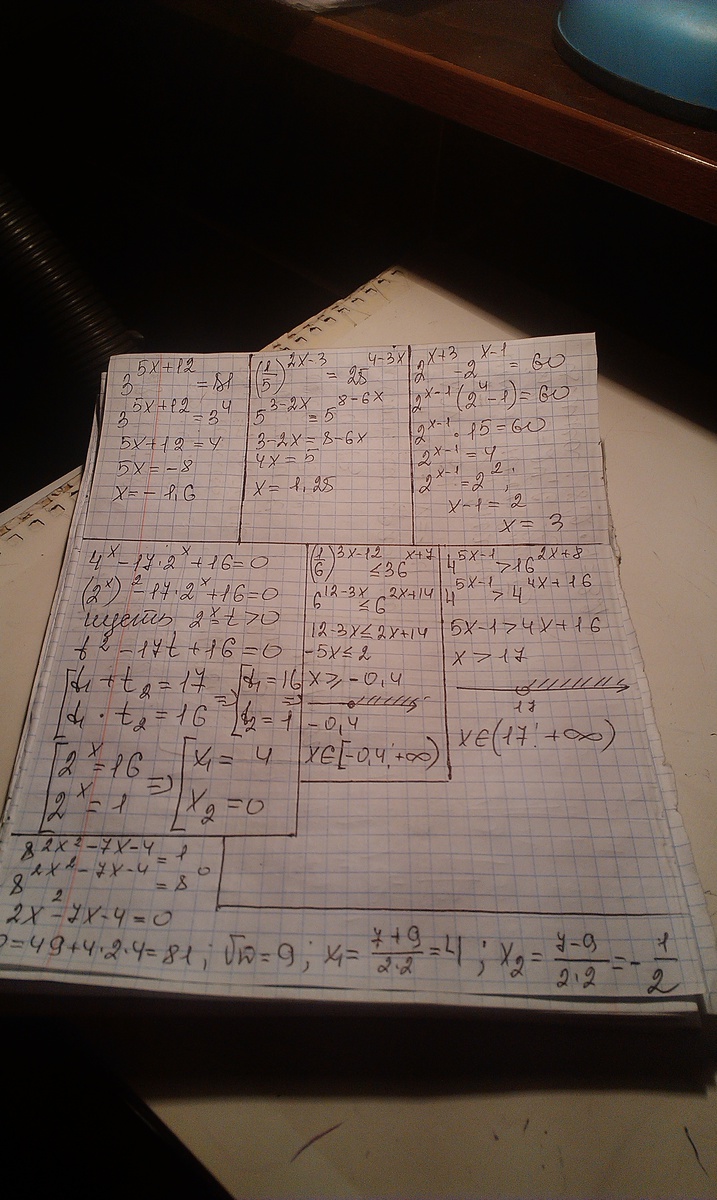 3^{5x+12} = 81
3^{5x+12} = 3^4
5x+12=4
5x=-8
x=-1,6
(1/5)^{2x-3} = 25^{4-3x}
5^{3-2x} = 5^{8-6x}
3-2x=8-6x
4x=5
x=1,25
2^{x+3} - 2^{x-1} = 60
2^{x-1}(2^4-1)=60
2^{x-1} · 15=60
2^{x-1} = 4
2^{x-1} = 2^2;
x-1=2
x=3
4^x-17·2^x+16=0
(2^x)^2-17·2^x+16=0
пусть 2^x=t>0
t^2-17t+16=0
[t₁+t₂=17 => [t₁=16 =>
[t₁·t₂=16 [t₂=1
[2^x=16 => [x₁=4
[2^x=1 [x₂=0
(1/6)^{3x-12} ≤36^{x+7}
6^{12-3x} ≤6^{2x+14}
12-3x≤2x+14
-5x≤2
x≥-0,4
-0,4
x∈[-0,4;+∞)
4^{5x-1}>16^{2x+8}
4^{5x-1}>4^{4x+16}
5x-1>4x+16
x>17
17
x∈(17;+∞)
8^{2x^2-7x-4}=1
8^{2x^2-7x-4}=8^0
2x^2-7x-4=0
D=49+4·2·4=81; √D=9; x₁=(7+9)/(2·2)=4; x₂=(7-9)/(2·2)=-1/2